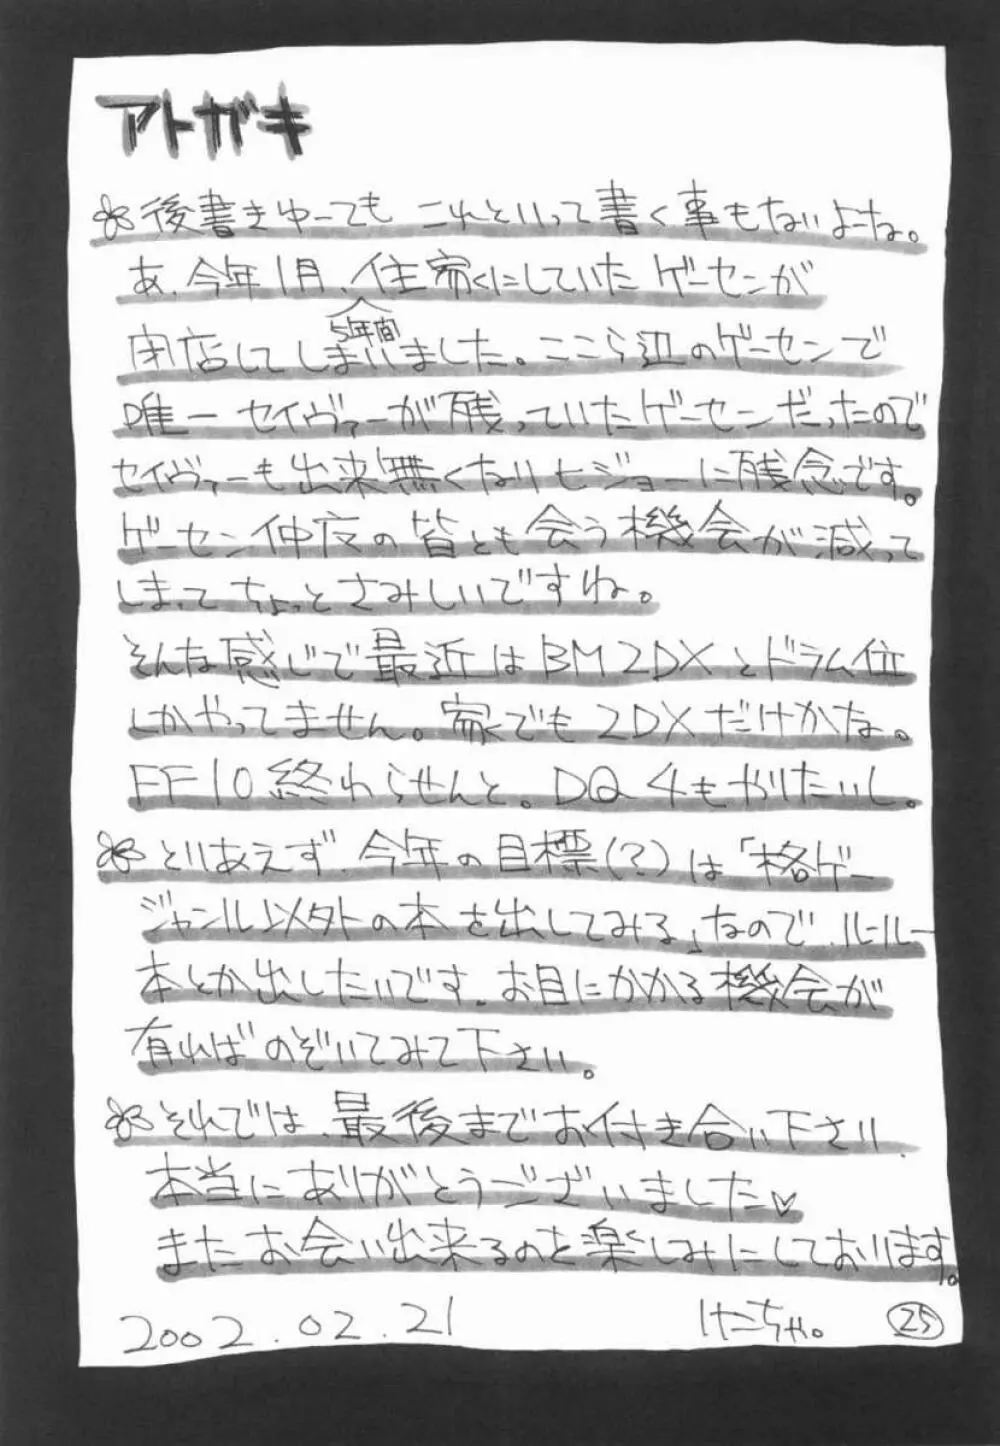 アトガキ
後書きゆーても これといって書く事もないよーな。
あ、今年1月、住家にしていたゲーセンが
5年間
閉店してしまいました。ここら辺のゲーセンで
唯一セイヴァーが残っていたゲーセンだったので
セイヴァーも出来無くなりヒジョーに残念です。
ゲーセン仲間の皆とも会う機会が減って
しまってちょっとさみしいですね。
そんな感じで最近はBM2DXとドラム位
しかやってません。家でも2DXだけかな。
FF10終わらせんと。DQ4もやりたいし。
とりあえず今年の目標(?)は「格ゲー
ジャンル以外の本を出してみる」なので、ルールー
本とか出したいです。お目にかかる機会が
有ればのぞいてみて下さい。
それでは、最後までお付き合い下さい
本当にありがとうございました♡
またお会い出来るのを楽しみにしております。
2002.02.21
けこちゃ。
25